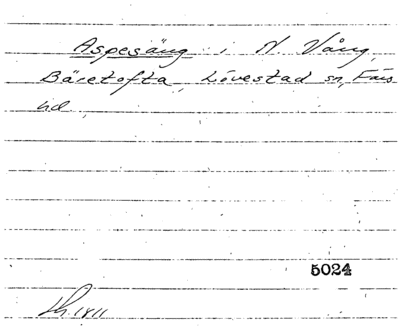 Aspesäng i N Vång,
Bäretofta, Lövestad sn, Färs
hd
5024
Lh. 1811